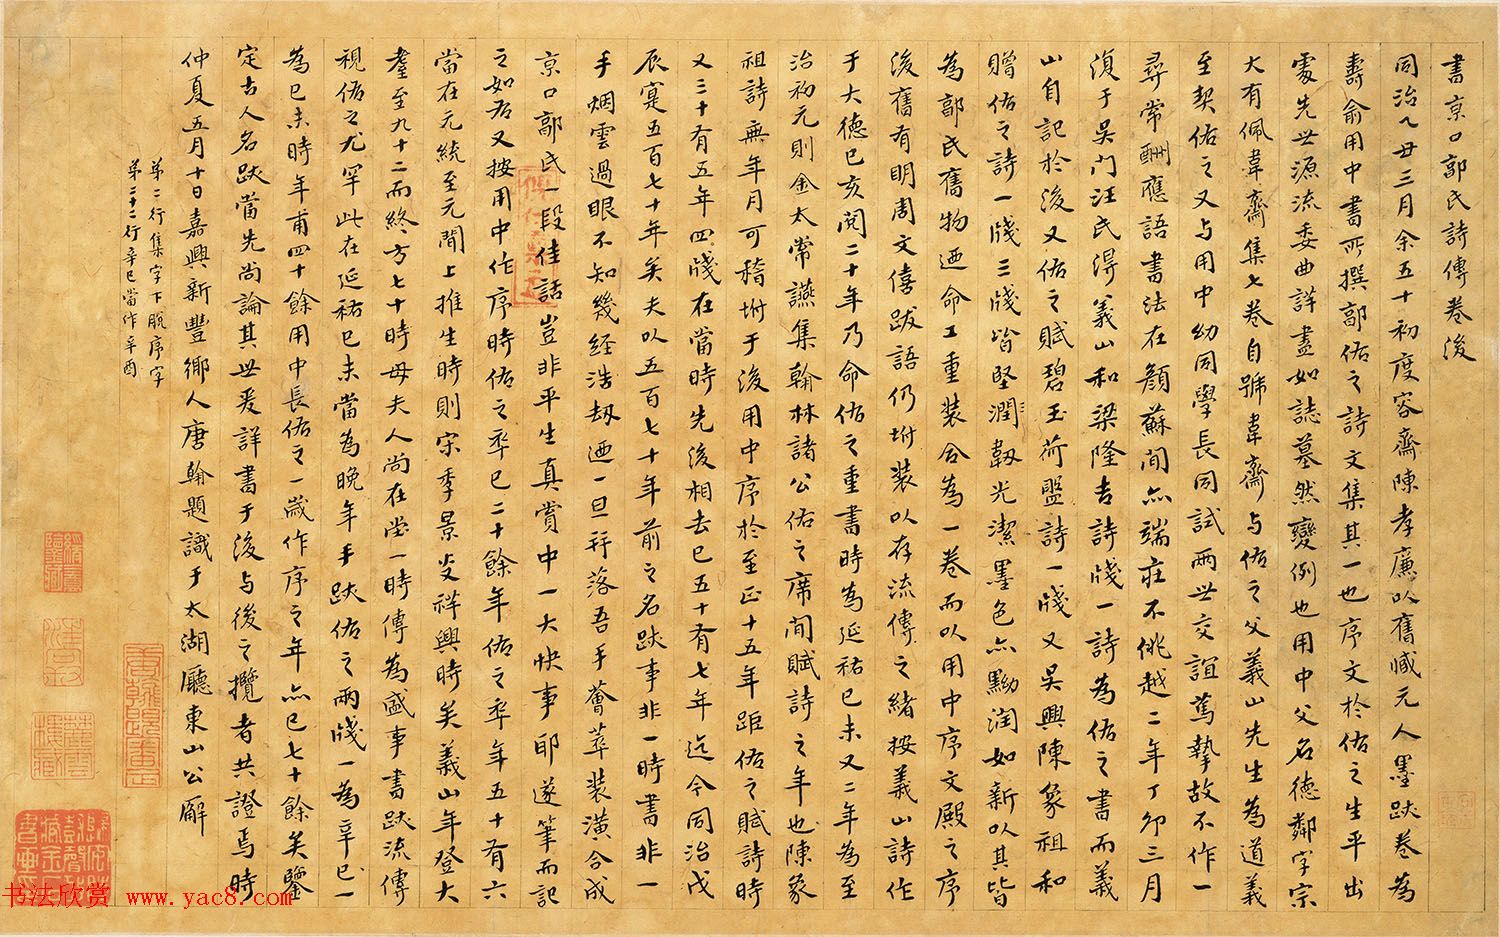 書京口郭氏詩傳卷後
同治乙丑三月余五十初度容齋陳孝廉以舊臧元人墨跡卷為
壽俞用中書所撰郭佑之詩文集其一也序文於佑之生平出
處先世源流委曲詳盡如誌墓然變例也用中父名德鄰字宗
大有佩韋齋集七卷自號韋齋與佑之父義山先生為道義
至契佑之又与用中幼同學長同試兩世交誼篤摯故不作一
尋常酬應語書法在顏蘇間亦端莊不佻越二年丁卯三月
復于吳门汪氏得義山和梁隆吉詩牋一詩為佑之書而義
山自記於後又佑之賦碧玉荷盤詩一牋又吳興陳象祖和
贈佑之詩一牋三牋皆堅潤韌光潔墨色亦黝润如新以其皆
為郭氏舊物迺命工重裝合為一卷而以用中序文殿之序
後舊有明周文僖跋語仍坿裝以存流傳之緒按義山詩作
于大德已亥閱二十年乃命佑之重書時為延祐已未又二年為至
治初元則金太常讌集翰林諸公佑之席间賦詩之年也陳象
祖詩無年月可稽坿于後用中序於至正十五年距佑之賦詩時
又三十有五年四牋在當時先後相去已五十有七年迄今同治戊
辰寔五百七十年矣夫以五百七十年前之名跡事非一時書非一
手烟雲過眼不知幾經浩劫迺一旦并落吾手薈萃裝潢合成
京口郭氏一段佳話豈非平生真賞中一大快事耶遂筆而記
之如右又按用中作序時佑之卒已二十餘年佑之卒年五十有六
當在元統至元間上推生時則宋季景炎祥興時矣義山年登大
耋至九十二而終方七十時母夫人尚在堂一時傳為盛事書跡流傳
視佑之尤罕此在延祐已未當為晚年手跡佑之兩牋一為辛巳一
為已未時年甫四十餘用中長佑之一歲作序之年亦已七十餘矣鑒
定古人名跡當先尚論其世爰詳書于後与後之攬者共證焉時
仲夏五月十日嘉興新豐鄉人唐翰題識于太湖廳東山公廨
第二行集字下脫序字
第二十二行辛巳當作辛酉
唐翰題審定
书法欣赏 www.yac8.com